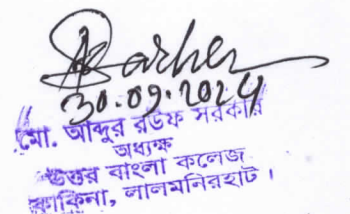 Sarker
30.09.2024
মো. আব্দুর রউফ সরকার
অধ্যক্ষ
উত্তর বাংলা কলেজ
কাকিনা, লালমনিরহাট।